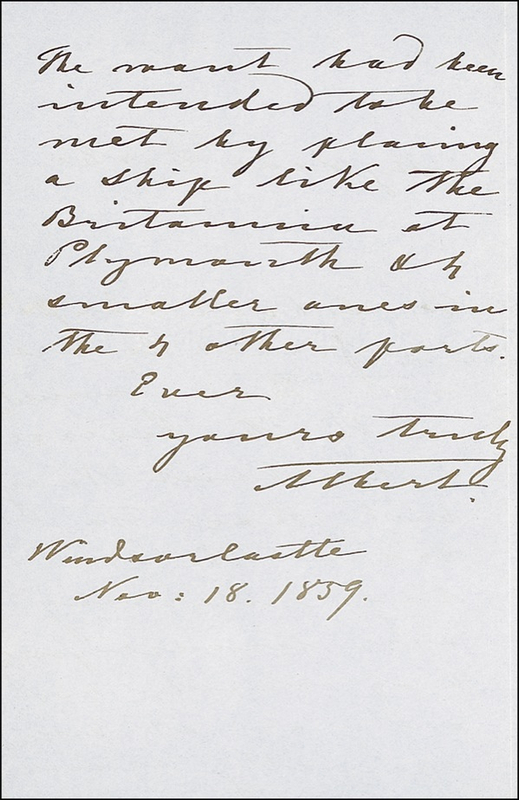 The want had been
intended to be
met by placing
a ship like the
Britannia at
Plymouth & 4
smaller ones in
the 4 other ports.
Ever
yours truly
Albert.
Windsor Castle
Nov: 18. 1859.